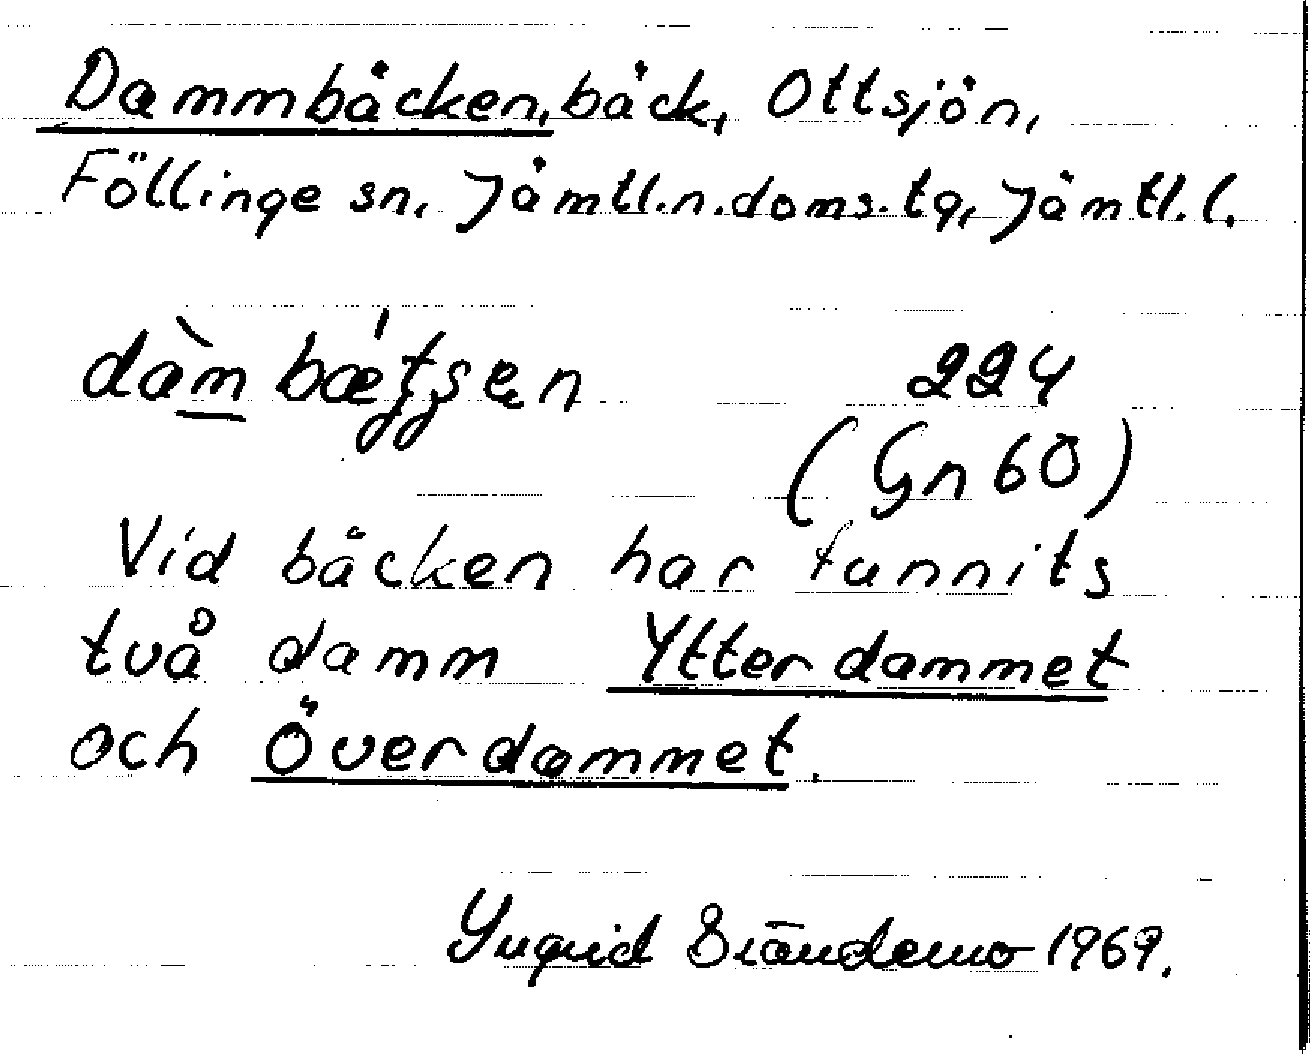 Dammbäcken, bäck, Ottsjön,
Föllinge sn, Jämtl.n.doms.tg, Jämtl.l.
224
(Gn 60)
Vid bäcken har funnits
två damm Ytterdammet
och Överdammet.
1969.